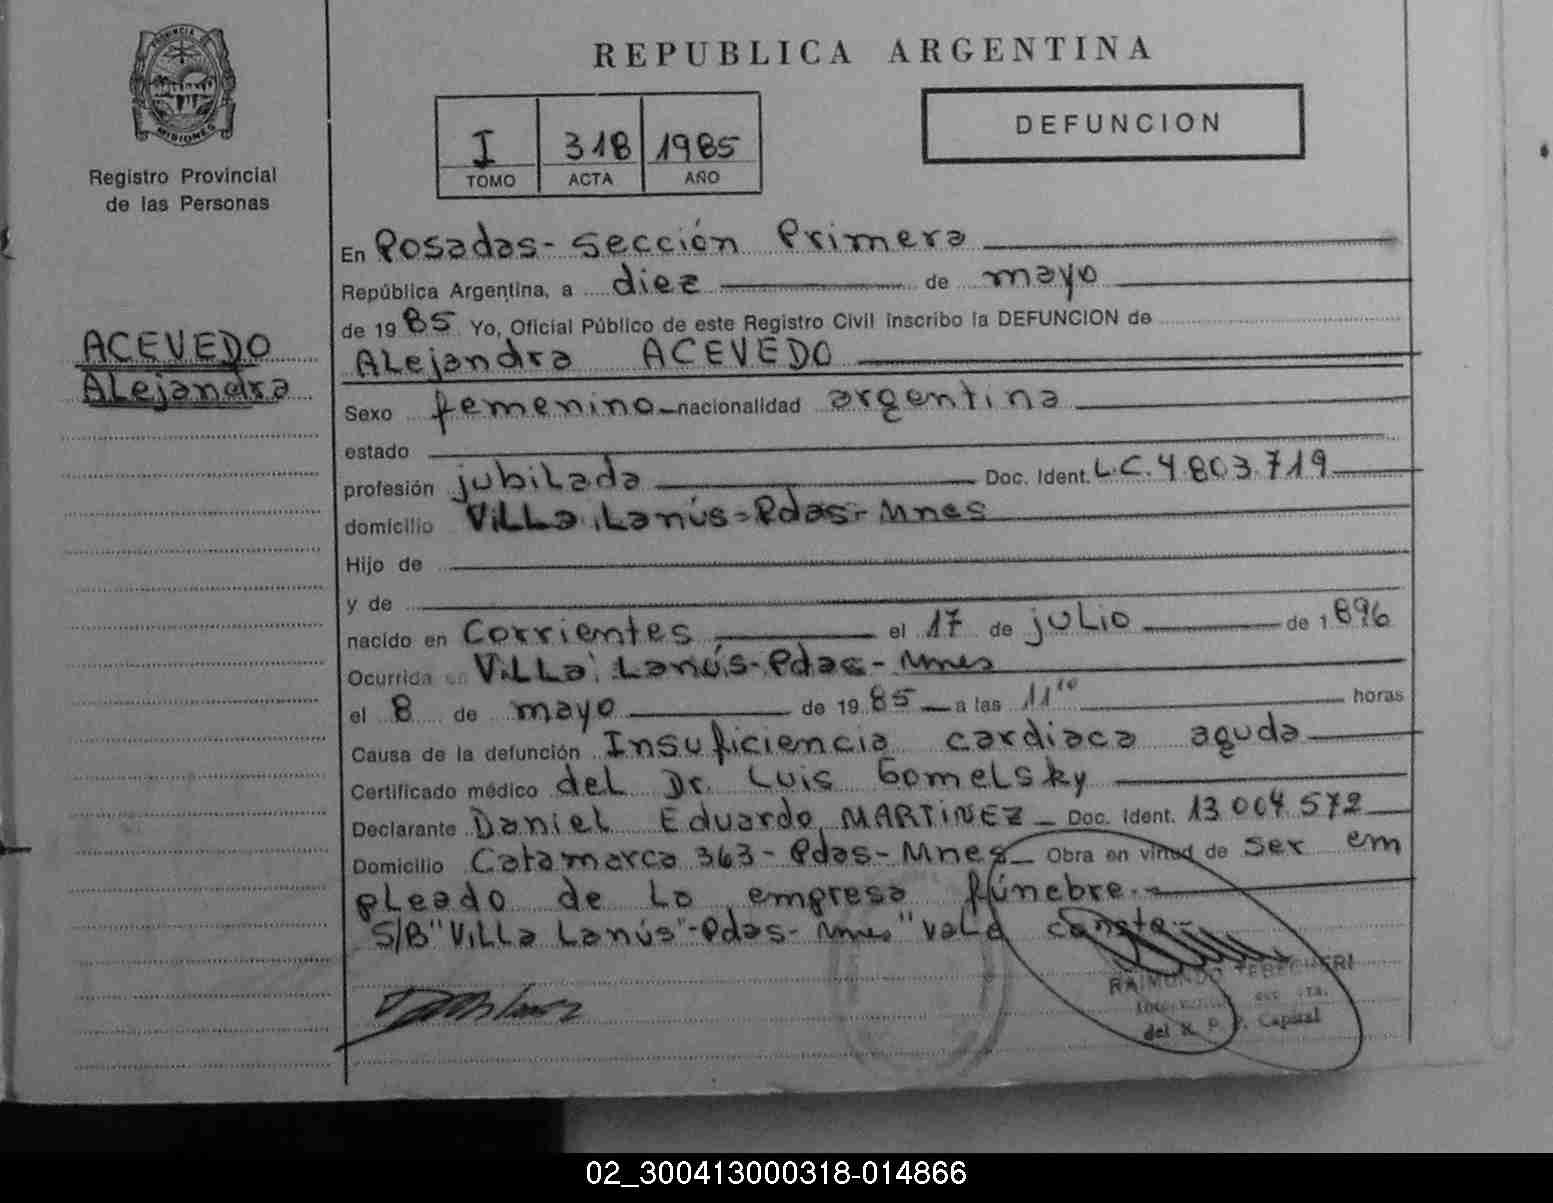 PROVINCIA DE
MISIONES
Registro Provincial
de las Personas
ACEVEDO
ALejandra
REPUBLICA ARGENTINA
I 318 1985
TOMO ACTA AÑO
DEFUNCION
En Posadas - Sección Primera
República Argentina, a diez de mayo
de 1985 Yo, Oficial Público de este Registro Civil inscribo la DEFUNCION de
ALejandra ACEVEDO
Sexo femenino nacionalidad argentina
estado
profesión jubiLada Doc. Ident. L.C. 4.803.719
domicilio ViLLa Lanús - Pdas - Mnes
Hijo de
y de
nacido en Corrientes el 17 de juLio de 1896
Ocurrida en ViLLa Lanús - Pdas - Mnes
el 8 de mayo de 1985 a las 11 horas
Causa de la defunción Insuficiencia cardiaca aguda
Certificado médico deL Dr. Luis GomeLsky
Declarante DanieL Eduardo MARTiNEZ Doc. Ident. 13.004.572
Domicilio Catamarca 363 - Pdas - Mnes Obra en virtud de ser em
pLeado de La empresa fúnebre.
S/B "ViLLa Lanús" - Pdas - Mnes" vaLe conste
RAIMUNDO
del R. P. P. Capital
02_300413000318-014866